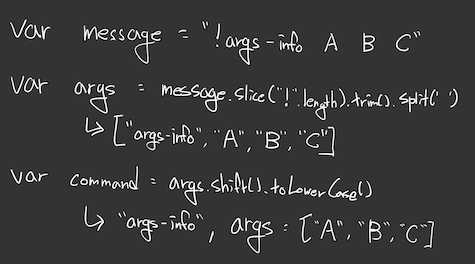 var message = "!args-info A B C"
var args = message.slice("!".length).trim().split(' ')
↳ ["args-info", "A", "B", "C"]
var command = args.shift().toLowerCase()
↳ "args-info", args = ["A", "B", "C"]